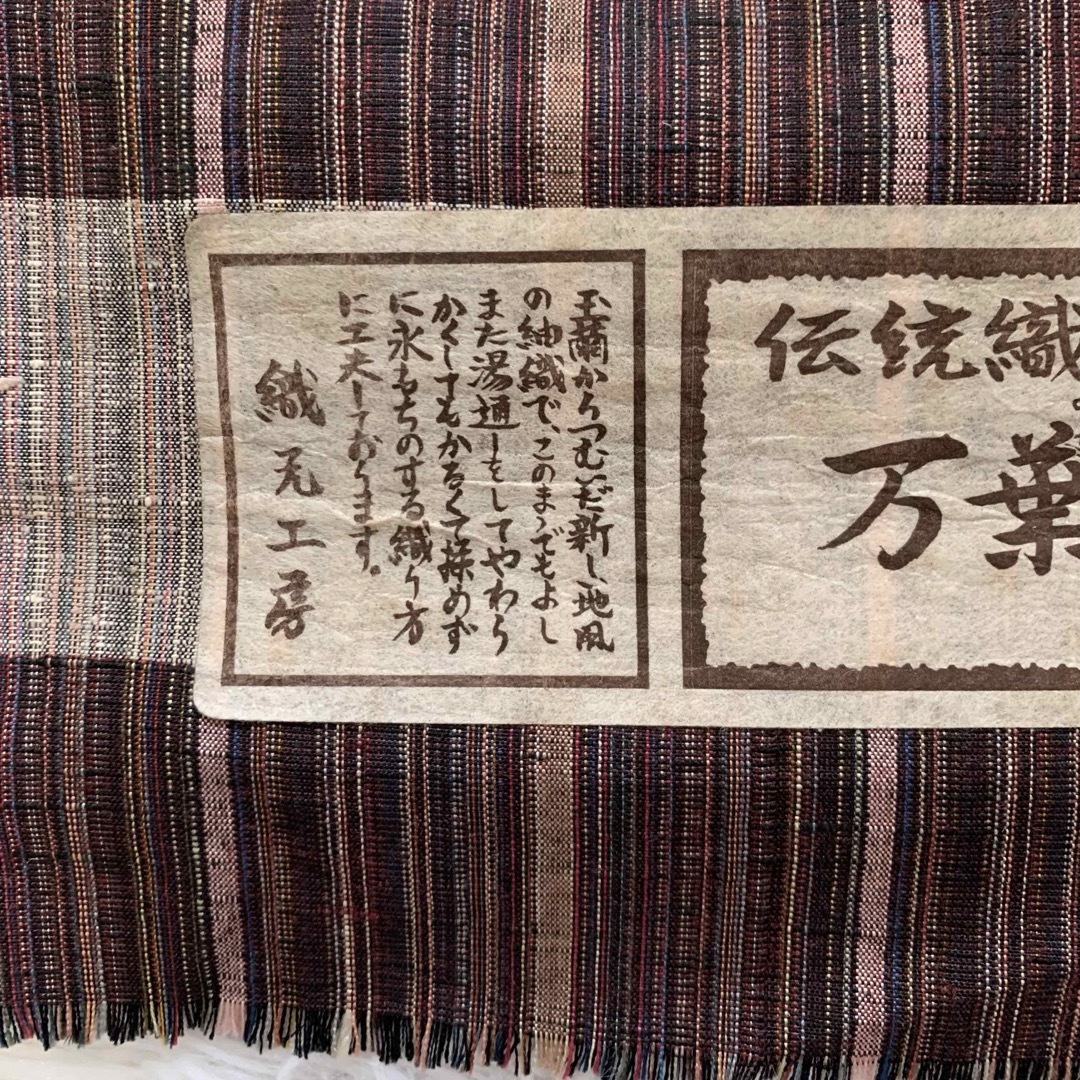 伝統織
万葉
玉繭からつむいだ新しい地風
の紬織で、このまゝでもよし
また湯通しをしてやわら
かくしてもかるくて揉めず
に永もちのする織り方
に工夫しております。
織元工房